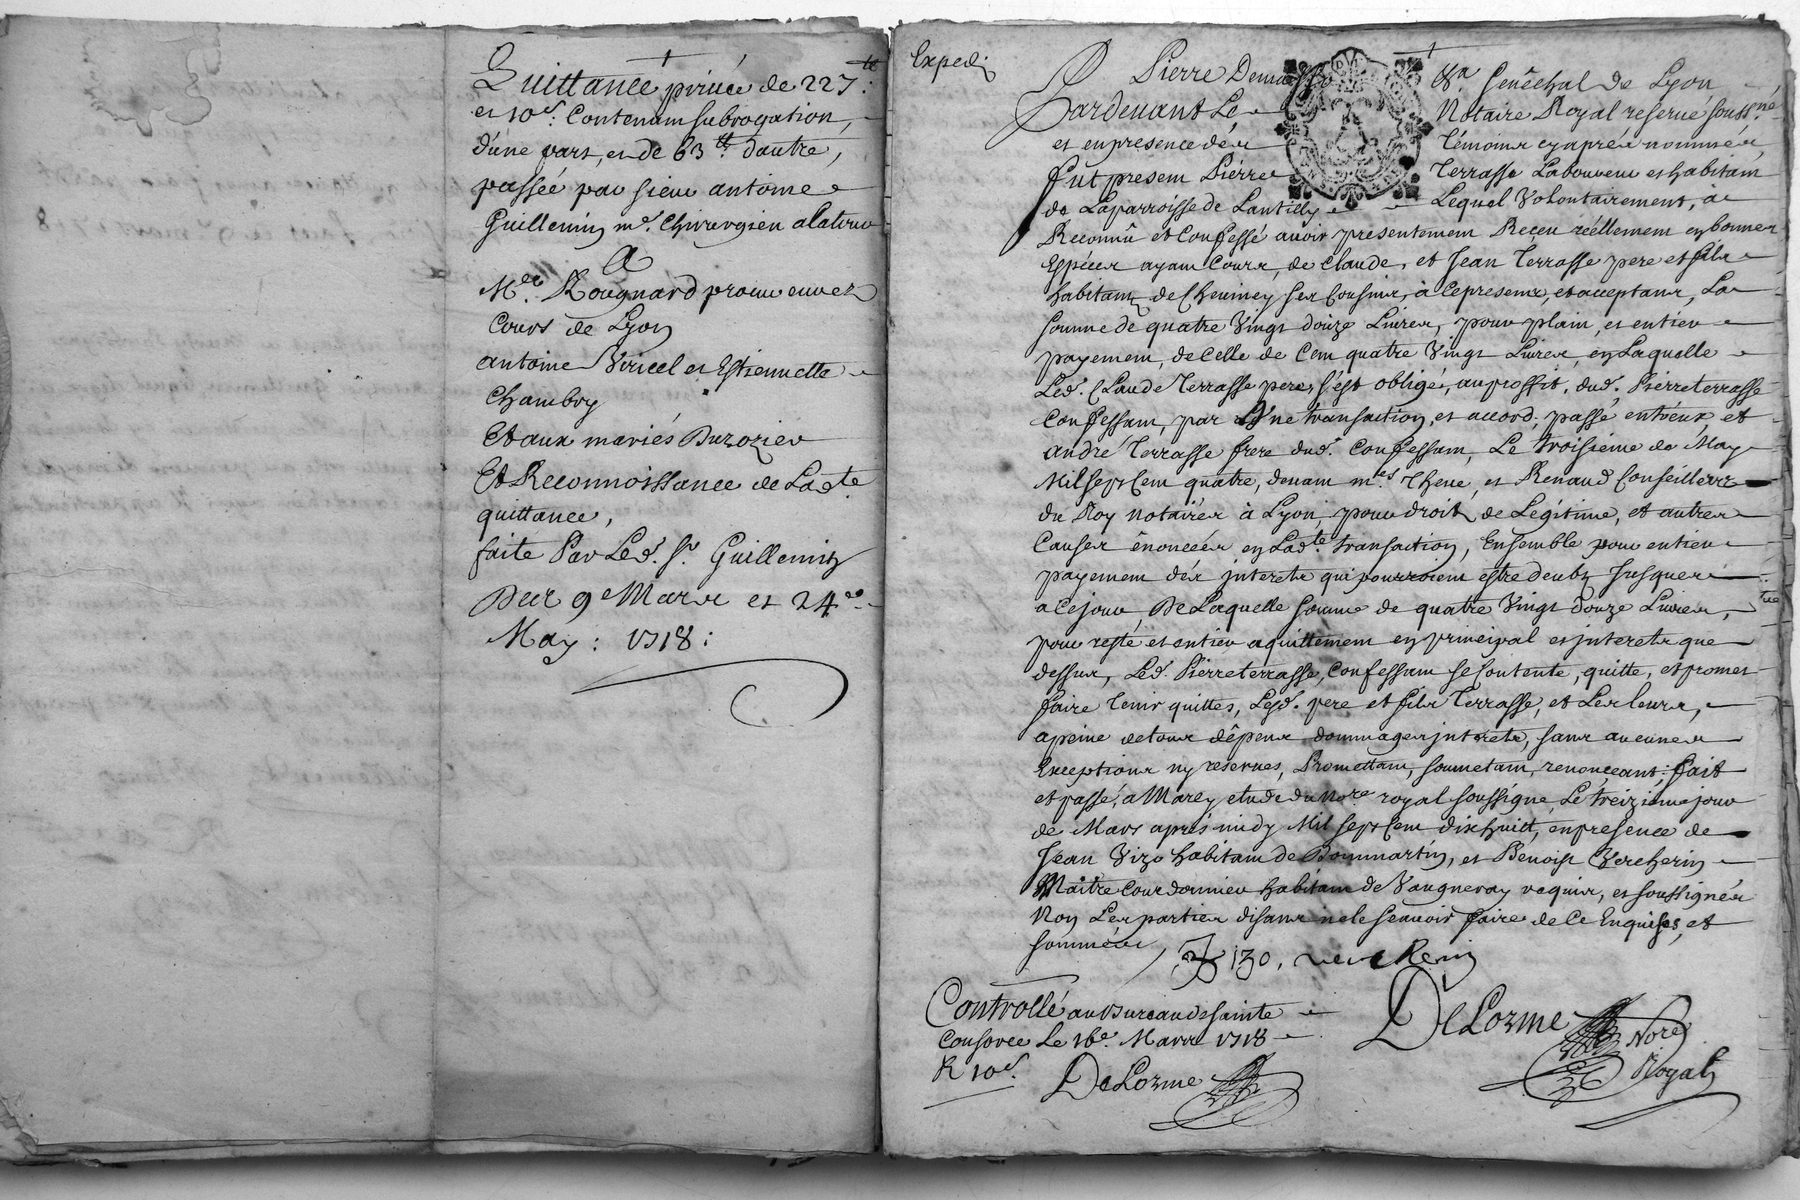 Quittance privée de 227.tt
et 10s. Contenant subrogation,
d'une part, et de 63.tt d'autre,
passée par sieur antoine
Guillemin me. Chirurgien
A
Me. Rougnard procureur ez
Cours de Lyon
antoine Viricel et Estiennette
Chambry
Et aux mariés Durozier
Et Reconnoissance de Ladte.
quittance,
faite Par Led. Sr. Guillemin
Des 9e Mars et 24e
May : 1718 :
Expedi
Pierre Gênêchal de Lyon
Pardevant Le Notaire Royal reservé soussné
et en presence dés Témoins cy aprés nommés
fut present Pierre Terrasse Laboureur et habitant
de Laparroisse de Lantilly Lequel Volontairement, a
Reconnû et Confessé avoir presentement Reçeu réellement en bonnes
Espéces ayant Cours, de Claude, et Jean Terrasse pere et fils
habitants de Cheviney ses Cousins, à ce presents, et acceptans, La
somme de quatre Vingt douze Livres, pour plain, et entier
payement, de Celle de Cent quatre Vingt Livres, en Laquelle
Led. Claude Terrasse pere, s'est obligé, au proffit, dud. Pierre terrasse
Confessant, par Une transaction, et accord, passé entr'eux, et
andré Terrasse frere dud. Confessant, Le troisiéme de May
Mil sept Cent quatre, devant mes. Theve, et Renaud Conseillers
du Roy notaires à Lyon, pour droit de Légitime, et autres
Causes énoncées en Ladte. transaction, Ensemble pour entier
payement dés interets qui pourroient estre deubs Jusques
a Ce jour, De Laquelle somme de quatre Vingt douze Livres,
pour reste et entier aquittement en principal et interets que
dessus, Led. Pierre terrasse, Confessant se Contente, quitte, et promet
faire tenir quittes, Lesd. pere et fils Terrasse, et Les leurs,
a peine de tous dêpens dommages interets, sans aucunes
Exceptions ny reserves, Promettant, soumetant, renonçeant; fait
et passé, a Marcy etude du Nore royal soussigné Le treiziéme jour
de Mars aprés midy Mil sept Cent dix huitt, en presence de
Jean Vizo habitant de Dommartin, et Benoist Vercherin
Maitre Courdonnier habitant de Vaugneray requis, et soussignés
Non Les parties disant ne le sçavoir faire de Ce Enquises, et
sommées
Controllé au Bureau de Sainte
Consorce Le 16e. Mars 1718
R 10s.
DeLorme
DeLorme
Nore
Royal